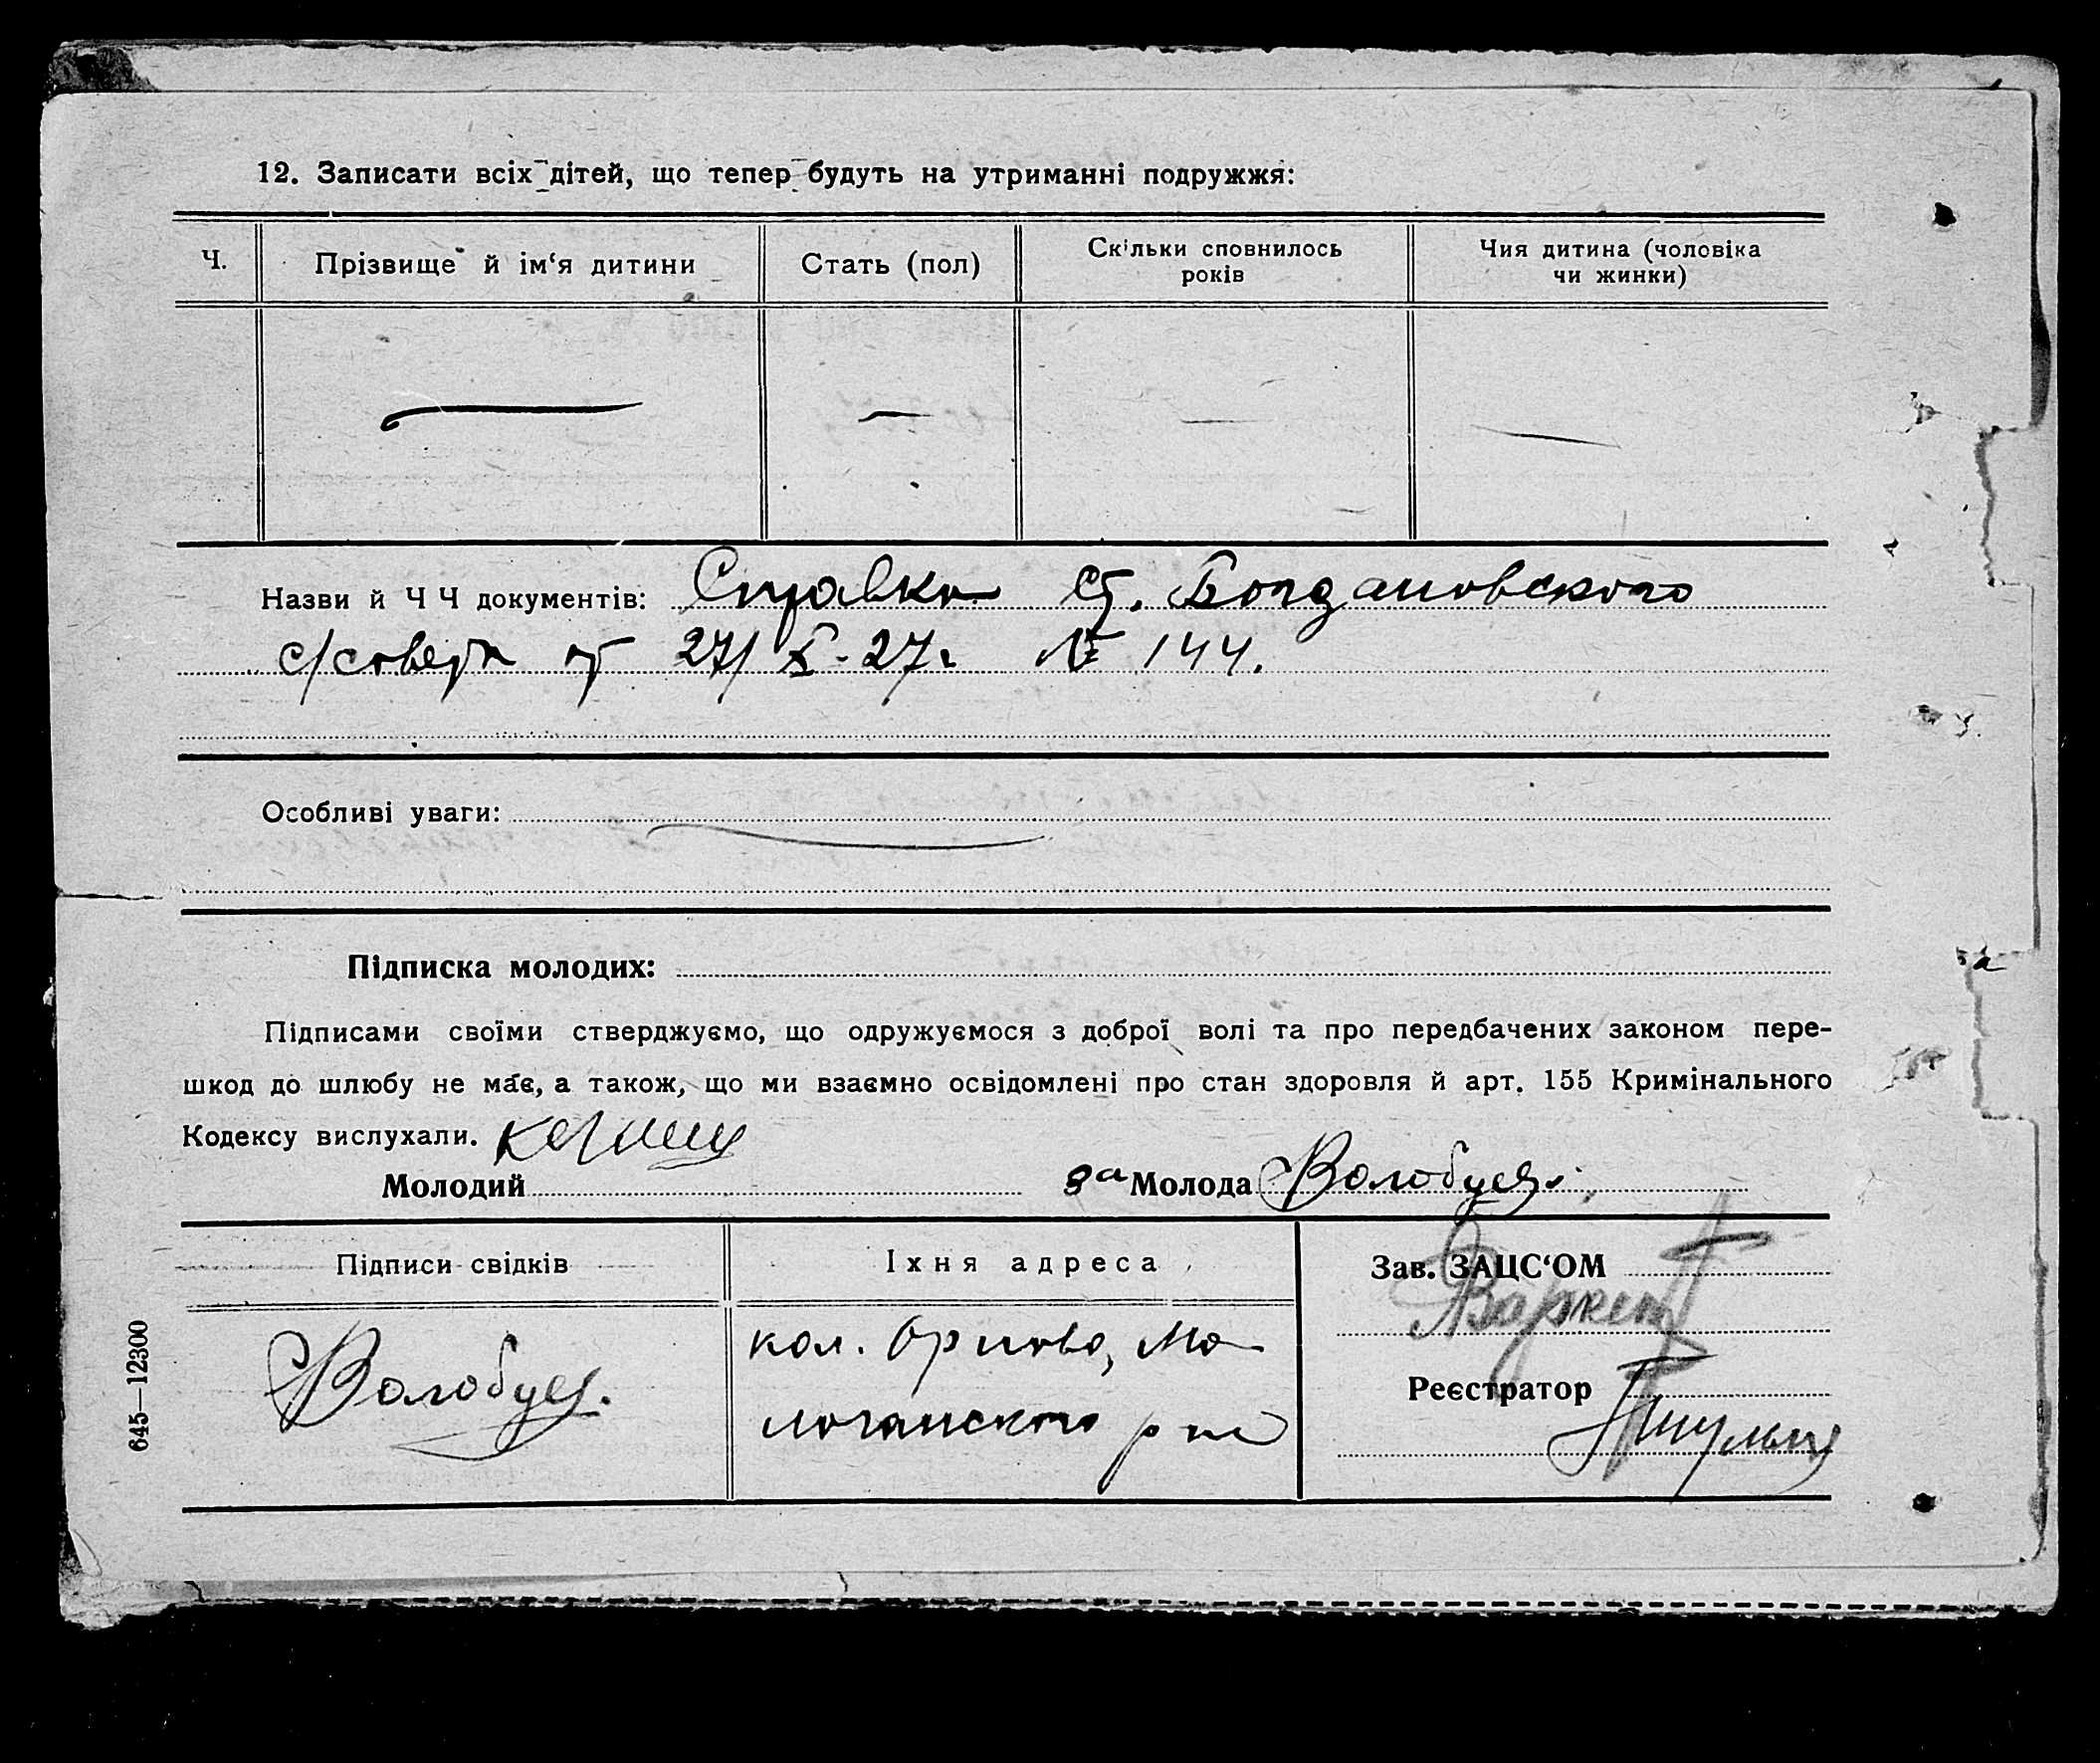 12. Записати всіх дітей, що тепер будуть на утриманні подружжя:
Ч.
Прізвище й ім‘я дитини
Стать (пол)
Скільки сповнилось
років
Чия дитина (чоловіка
чи жинки)
Назви й Ч Ч документів: Справка Ст. Богдановского
с/совета от 27/X-27г № 144.
Особливі уваги:
Підписка молодих:
Підписами своїми стверджуємо, що одружуємося з доброї волі та про передбачених законом пере-
шкод до шлюбу не має, а також, що ми взаємно освідомлені про стан здоровля й арт. 155 Кримінального
Кодексу вислухали.
Молодий
за Молода Волобуев
Підписи свідків
Іхня адреса
Зав. ЗАЦС‘ОМ
Волобуев.
кол. Орлово, Мо-
лочанского р на
Реєстратор
645—12300